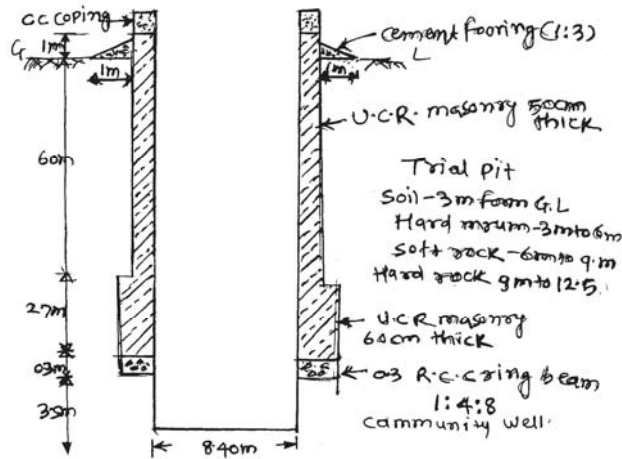 CC coping
G
1m
1m
60m
2.7m
03m
3.5m
8.40m
cement flooring (1:3)
L
1m
U.C.R. masonry 50cm
thick
Trial pit
Soil-3m form G.L
Hard mrum-3m to 6m
Soft rock-6m to 9.m
Hard rock 9m to 12.5.
U.C.R masonry
60cm thick
0.3 R.C.C ring beam
1:4:8
Community well.